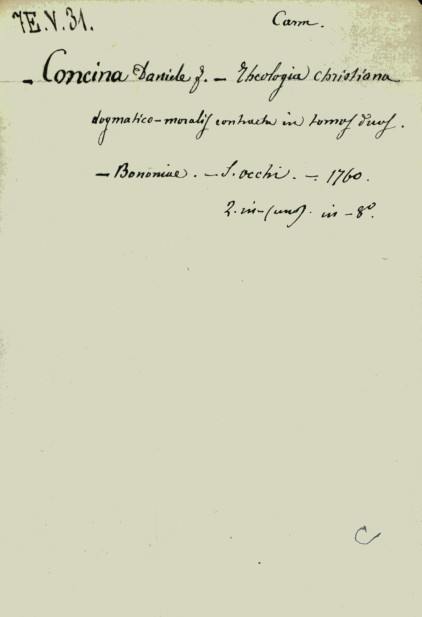 7E.V.31.
Carm.
- Concina Daniele f. - Theologia christiana
dogmatico-moralis contracta in tomos duos.
- Bononiae. - S. occhi. - 1760.
2. in-(uno). in-8º.
C